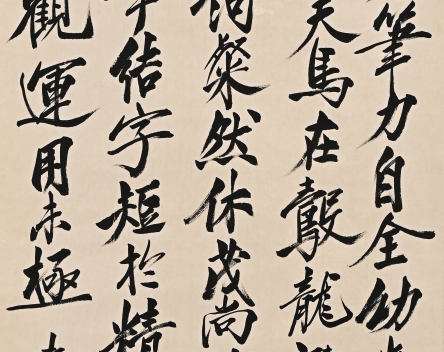 筆力自全幼
天馬在鷇龍
粲然休茂尚
結字短於精
觀運用未極